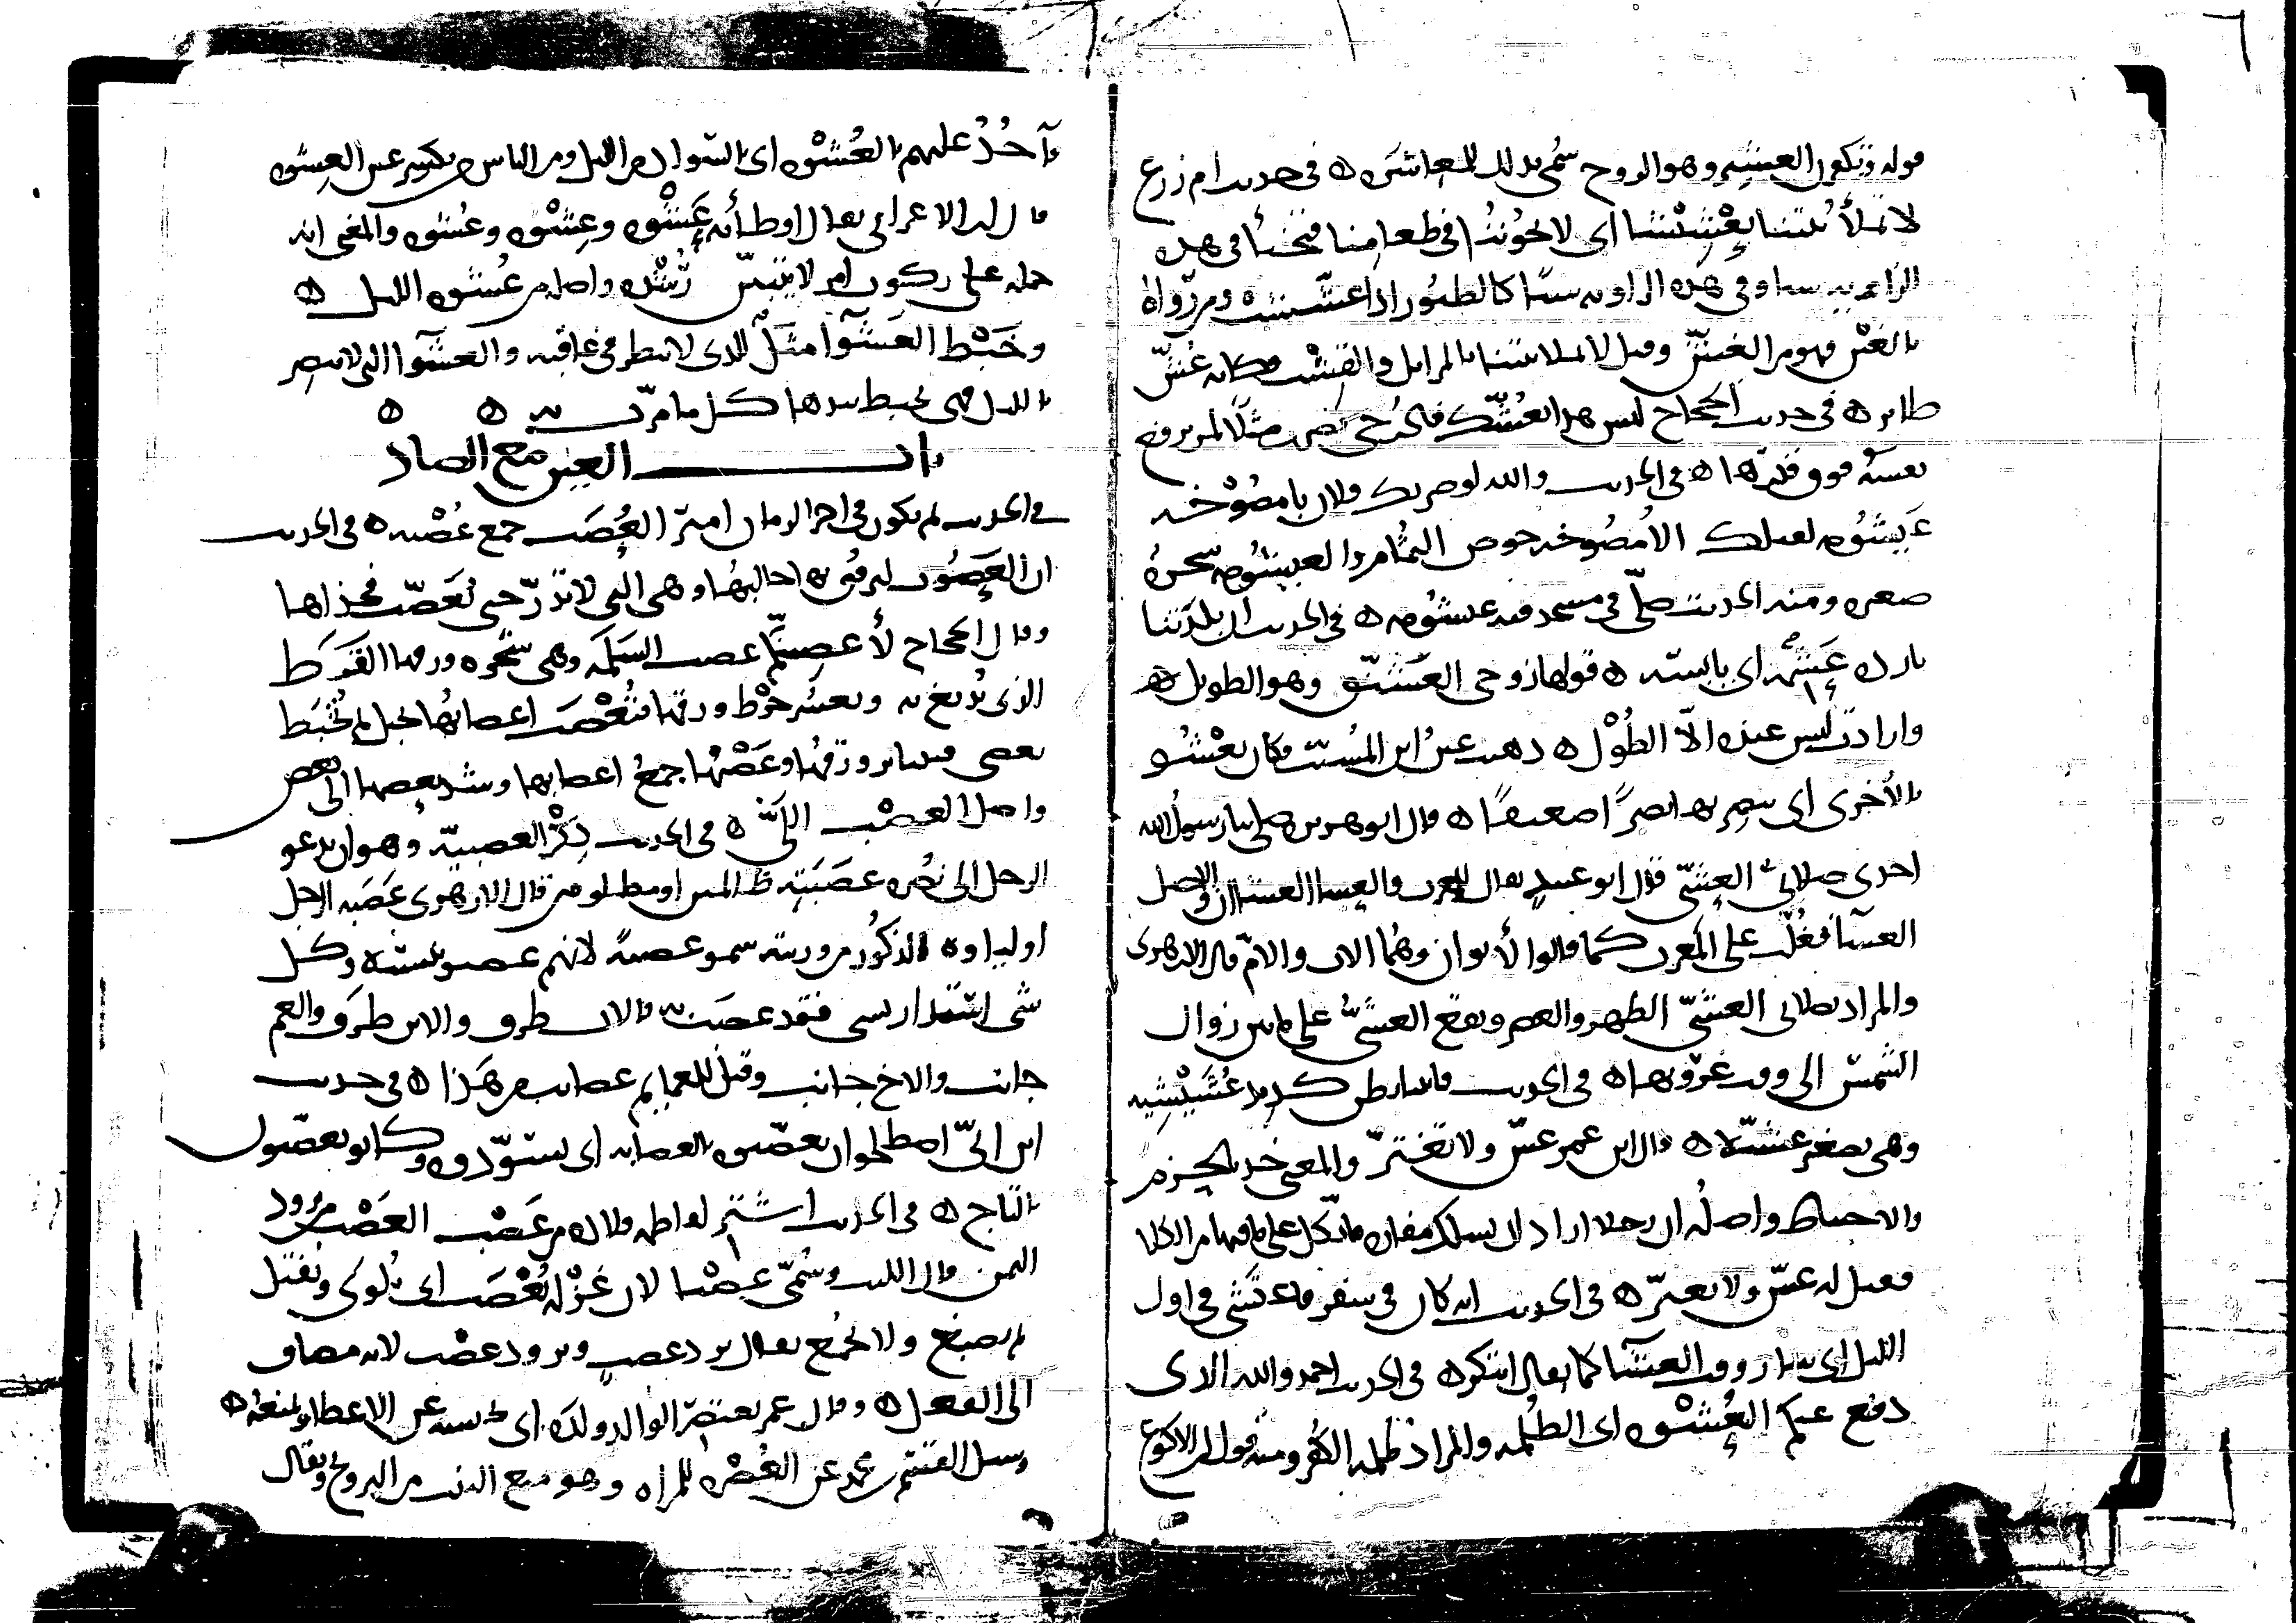 قوله وتكفرن العشير وهو الزوج سمي بذلك للمعاشرة ه في حديث ام زرع
لا تملأ بيتنا تعشيشا اي لا تخوننا في طعامنا فتخبأ في هذه
الزاوية شيئا وفي هذه الزاويه شيئا كالطيور اذا عششت ومن رواه
بالغين فهو من الغش وقيل لا تملا بيتنا بالمزابل والقش فكانه عش
طاير ه في حديث الحجاج ليس هذا بعشك فادرجي يضرب مثلا لمن يرفع
نفسه فوق قدرها ه في الحديث والله لو ضربك فلان بامصوخه
عيشومه لقتلك الامصوخه خوص الثمام والعيشومه شجرة
صغيره ومنه الحديث صلى في مسجد فيه عيشومه ه في الحديث ان بلدتنا
بارده عشمه اي يابسه ه قولها زوجي العشنق وهو الطويل ه
وارادت ليس عنده الا الطول ه ذهبت عين ابن المسيب فكان يعشو
بالاخرى اي يبصر بها بصرا ضعيفا ه قال ابو هريره صلى بنا رسول الله
احدى صلاتي العشي قال ابو عبيد يقال للمغرب والعشا العشاان والاصل
العشا فغلب على المغرب كما قالوا الأبوان وهما الاب والام قال الازهري
والمراد بصلاتي العشي الظهر والعصر ويقع العشي على ما بين زوال
الشمس الى وقت غروبها ه في الحديث فاتينا بطن كديد عشيشيه
وهي تصغير عشيه ه قال ابن عمر عش ولا تغتر والمعنى خذ بالحزم
والاحتياط واصله ان رجلا اراد ان يسلك مفازه فاتكل على ما فيها من الكلا
فقيل له عش ولا تغتر ه في الحديث انه كان في سفر فاعتشى في اول
الليل اي سار وقت العشا كما يقال ابتكر ه في الحديث احمدوا الله الذي
دفع عنكم العشوه اي الظلمه والمراد ظلمه الكفر ومنه قول ابن الاكوع
فآخذ عليهم بالعشوه اي بالسواد من الليل ومن الناس من يكسر عين العشوه
قال ابن الاعرابي يقال اوطأته عشوه وعشوه وعشوه والمعنى انه
حمله على ركوب امر لا يتبين رشده واصله من عشوه الليل ه
وخبط العشوا مثل للذي لا ينظر في عاقبه والعشوا التي لا تبصر
بالليل فهي تخبط بيدها كل ما مرت به ه ه
باب العين مع الصاد
في الحديث ثم يكون في اخر الزمان امير العصب جمع عصبه ه في الحديث
ان العصوب يرفق بها حالبها وهي التي لا تدر حتى تعصب فخذاها
وقال الحجاج لأعصبنكم عصب السلمه وهي شجره ورقها القرظ
الذي يدبغ به ويعسر خرط ورقها فتعصب اغصانها بحبل ثم تخبط
بعصى فيتناثر ورقها وعصبها جمع اغصانها وشد بعضها الى بعض
واصل العصب اللي ه في الحديث ذكر العصبية وهو ان يدعو
الرجل الى نصره عصبته ظالمين او مظلومين قال الازهري عصبه الرجل
اولياوه الذكور من ورثته سموا عصبة لانهم عصبوا بنسبه وكل
شي استدار بشي فقد عصب به فالاب طرف والابن طرف والعم
جانب والاخ جانب وقيل للعمايم عصايب من هذا ه في حديث
ابن ابي اصطلحوا ان يعصبوه بالعصابه اي يسودوه وكانوا يعصبون
بالتاج ه في الحديث اشتر لفاطمه قلاده من عصب العصب برود
اليمن قال الليث وسمي عصبا لان غزله يعصب اي يلوى ويفتل
ثم يصبغ ولا يجمع يقال برد عصب وبرود عصب لانه مضاف
الى الفعل ه وقال عمر يعتصر الوالد ولده اي يحبسه عن الاعطا ويمنعه ه
وسئل القسم بن محمد عن العصره للمراه وهو منع البنت من التزوج ويقال